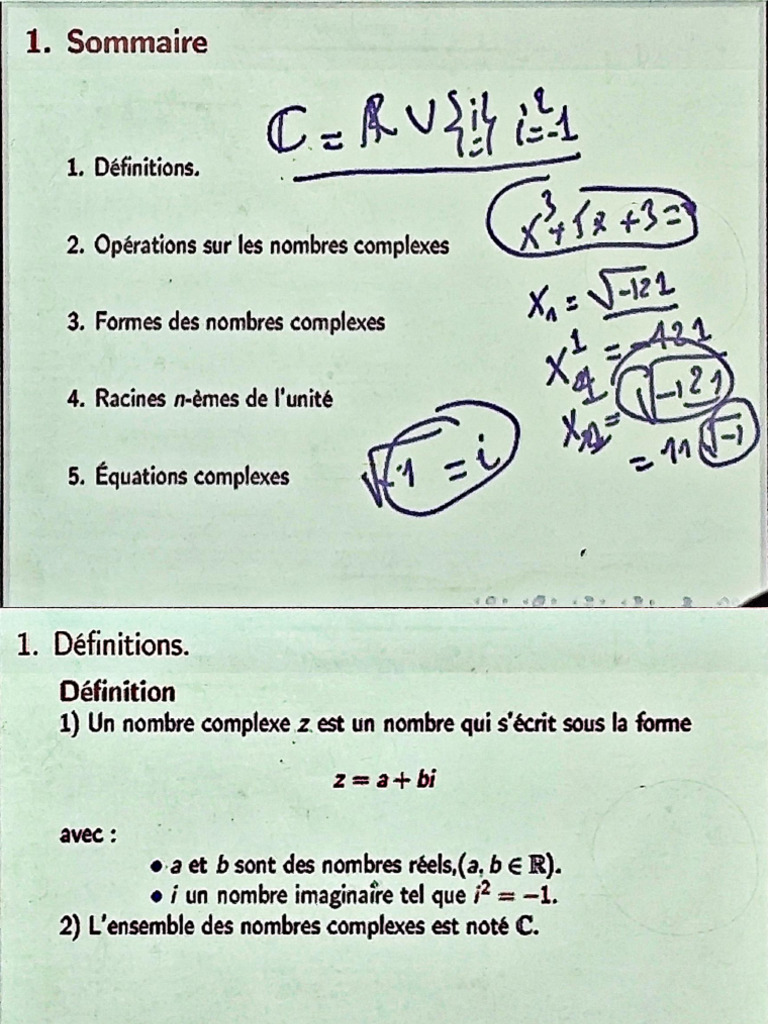 1. Sommaire
ℂ = ℝ ∪ {i} i² = -1
1. Définitions.
2. Opérations sur les nombres complexes
x³ + 5x + 3 =
3. Formes des nombres complexes
x₁ = √-121
= -121
4. Racines n-èmes de l'unité
√-121
= 11 √-1
5. Équations complexes
√-1 = i
1. Définitions.
Définition
1) Un nombre complexe z est un nombre qui s'écrit sous la forme
z = a + bi
avec :
• a et b sont des nombres réels,(a, b ∈ ℝ).
• i un nombre imaginaire tel que i² = −1.
2) L'ensemble des nombres complexes est noté ℂ.